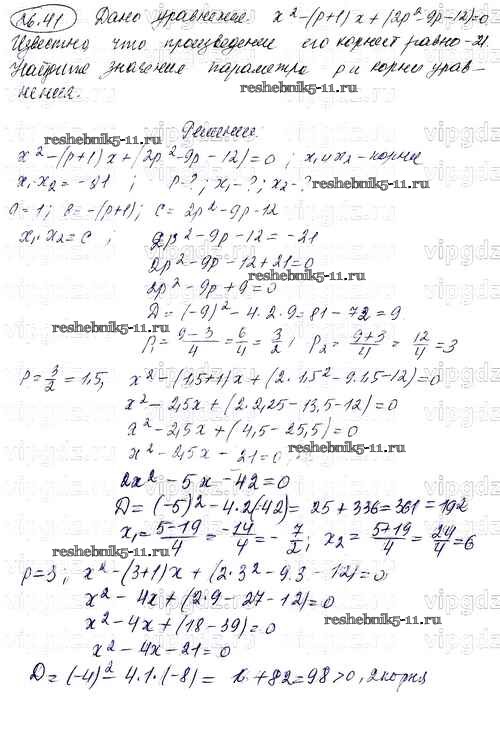 26.41 Дано уравнение. x² - (p+1)x + (2p² - 9p - 12) = 0
Известно, что произведение его корней равно -21.
Найдите значение параметра p и корни урав-
нения.
reshebnik5-11.ru
Решение:
reshebnik5-11.ru
x² - (p+1)x + (2p² - 9p - 12) = 0 ; x₁ и x₂ - корни
x₁·x₂ = -21 ; p - ? ; x₁ - ? ; x₂ - ?
reshebnik5-11.ru
a = 1; b = -(p+1); c = 2p² - 9p - 12
x₁·x₂ = c ; 2p² - 9p - 12 = -21
2p² - 9p - 12 + 21 = 0
reshebnik5-11.ru
2p² - 9p + 9 = 0
D = (-9)² - 4·2·9 = 81 - 72 = 9
reshebnik5-11.ru
p₁ = (9-3)/4 = 6/4 = 3/2 ; p₂ = (9+3)/4 = 12/4 = 3
p = 3/2 = 1,5, x² - (1,5+1)x + (2·1,5² - 9·1,5 - 12) = 0
x² - 2,5x + (2·2,25 - 13,5 - 12) = 0
x² - 2,5x + (4,5 - 25,5) = 0
reshebnik5-11.ru
x² - 2,5x - 21 = 0
2x² - 5x - 42 = 0
D = (-5)² - 4·2·(-42) = 25 + 336 = 361 = 19²
x₁ = (5-19)/4 = -14/4 = -7/2 ; x₂ = (5+19)/4 = 24/4 = 6
reshebnik5-11.ru
p = 3 ; x² - (3+1)x + (2·3² - 9·3 - 12) = 0
x² - 4x + (2·9 - 27 - 12) = 0
x² - 4x + (18 - 39) = 0
reshebnik5-11.ru
x² - 4x - 21 = 0
D = (-4)² - 4·1·(-8) = + 82 = 98 > 0, 2 корня